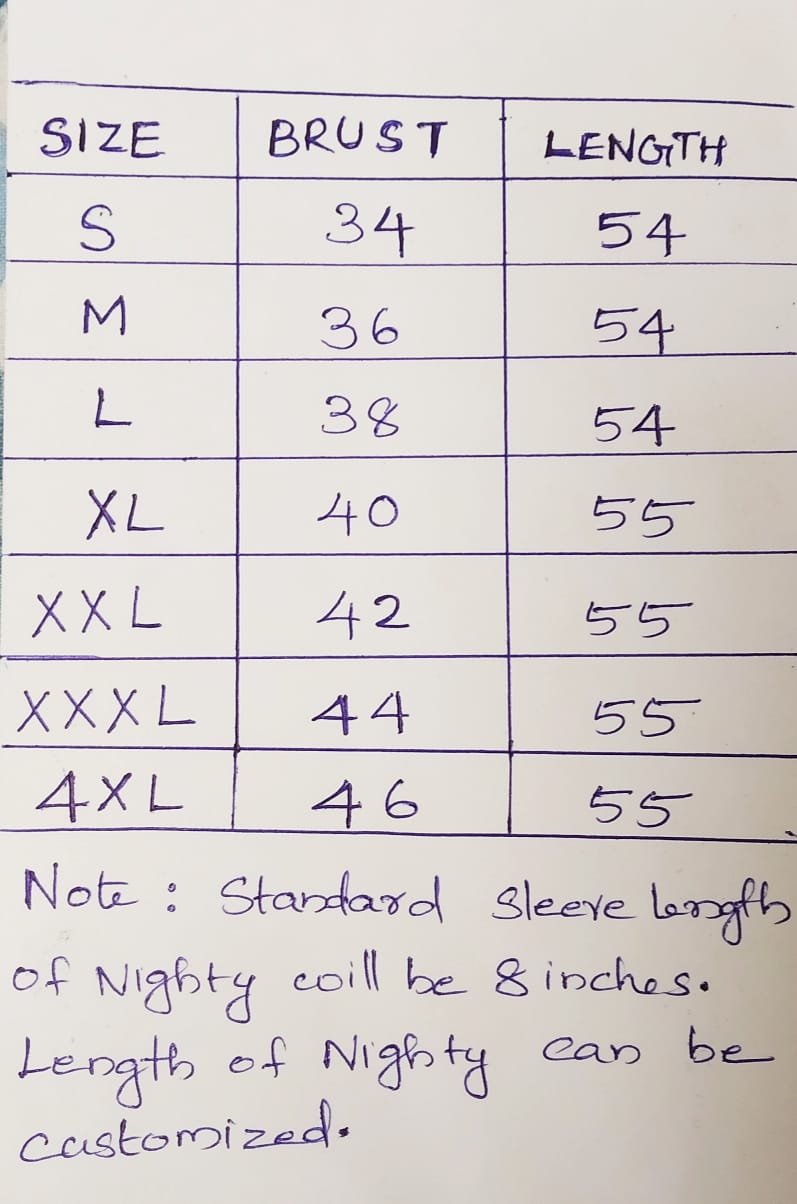 SIZE BRUST LENGTH
S 34 54
M 36 54
L 38 54
XL 40 55
XXL 42 55
XXXL 44 55
4XL 46 55
Note : Standard Sleeve length
of Nighty will be 8 inches.
Length of Nighty can be
customized.